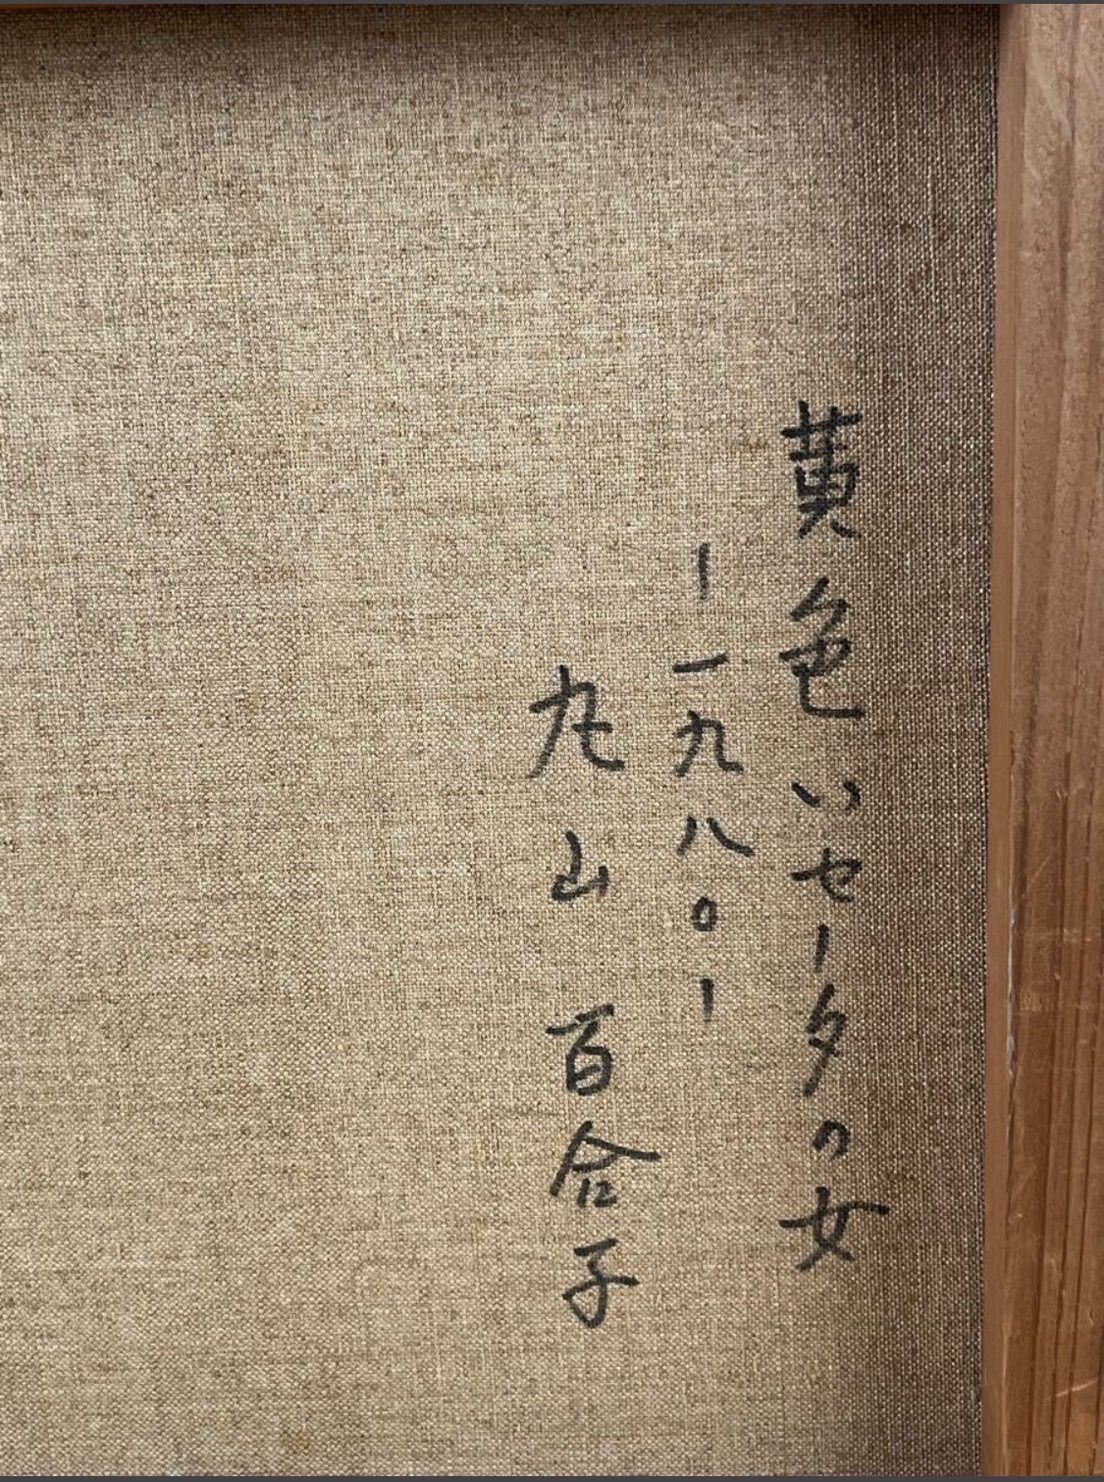 黄色いセータの女
ー一九八〇ー
丸山 百合子